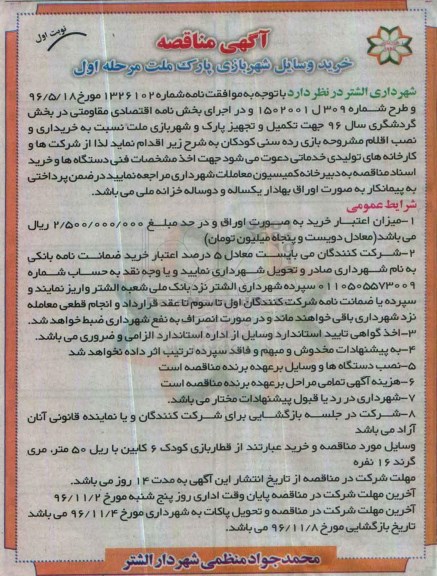 نوبت اول
آگهی مناقصه
خرید وسایل شهربازی پارک ملت مرحله اول
شهرداری الشتر در نظر دارد با توجه به موافقت نامه شماره ۱۳۲۶۱۰۲ مورخ ۹۶/۵/۱۸
و طرح شماره ۳۰۹ ل ۱۵۰۲۰۰۱ و در اجرای بخش نامه اقتصادی مقاومتی در بخش
گردشگری سال ۹۶ جهت تکمیل و تجهیز پارک و شهربازی ملت نسبت به خریداری و
نصب اقلام مشروحه بازی رده سنی کودکان به شرح زیر اقدام نماید لذا از شرکت ها و
کارخانه های تولیدی خدماتی دعوت می شود جهت اخذ مشخصات فنی دستگاه ها و خرید
اسناد مناقصه به دبیرخانه کمیسیون معاملات شهرداری مراجعه نمایید در ضمن پرداختی
به پیمانکار به صورت اوراق بهادار یکساله و دوساله خزانه ملی می باشد.
شرایط عمومی
۱-میزان اعتبار خرید به صورت اوراق و در حد مبلغ ۲/۵۰۰/۰۰۰/۰۰۰ ریال
می باشد(معادل دویست و پنجاه میلیون تومان)
۲-شرکت کنندگان می بایست معادل ۵ درصد اعتبار خرید ضمانت نامه بانکی
به نام شهرداری صادر و تحویل شهرداری نمایید و یا وجه نقد به حساب شماره
۰۱۱۰۵۰۵۵۷۳۰۰۹ سپرده شهرداری الشتر نزد بانک ملی شعبه الشتر واریز نمایند و
سپرده یا ضمانت نامه شرکت کنندگان اول تا سوم تا عقد قرارداد و انجام قطعی معامله
نزد شهرداری باقی خواهند ماند و در صورت انصراف به نفع شهرداری ضبط خواهد شد.
۳-اخذ گواهی تایید استاندارد وسایل از اداره استاندارد الزامی و ضروری می باشد.
۴-به پیشنهادات مخدوش و مبهم و فاقد سپرده ترتیب اثر داده نخواهد شد
۵-نصب دستگاه ها و وسایل بر عهده برنده مناقصه است
۶-هزینه آگهی تمامی مراحل بر عهده برنده مناقصه است
۷-شهرداری در رد یا قبول پیشنهادات مختار می باشد.
۸-شرکت در جلسه بازگشایی برای شرکت کنندگان و یا نماینده قانونی آنان
آزاد می باشد
وسایل مورد مناقصه و خرید عبارتند از قطاربازی کودک ۶ کابین با ریل ۵۰ متر، مری
گرند ۱۶ نفره
مهلت شرکت در مناقصه از تاریخ انتشار این آگهی به مدت ۱۴ روز می باشد.
آخرین مهلت شرکت در مناقصه پایان وقت اداری روز پنج شنبه مورخ ۹۶/۱۱/۲
آخرین مهلت شرکت در مناقصه و تحویل پاکات به شهرداری مورخ ۹۶/۱۱/۴ می باشد
تاریخ بازگشایی مورخ ۹۶/۱۱/۸ می باشد.
محمدجواد منظمی شهردار الشتر